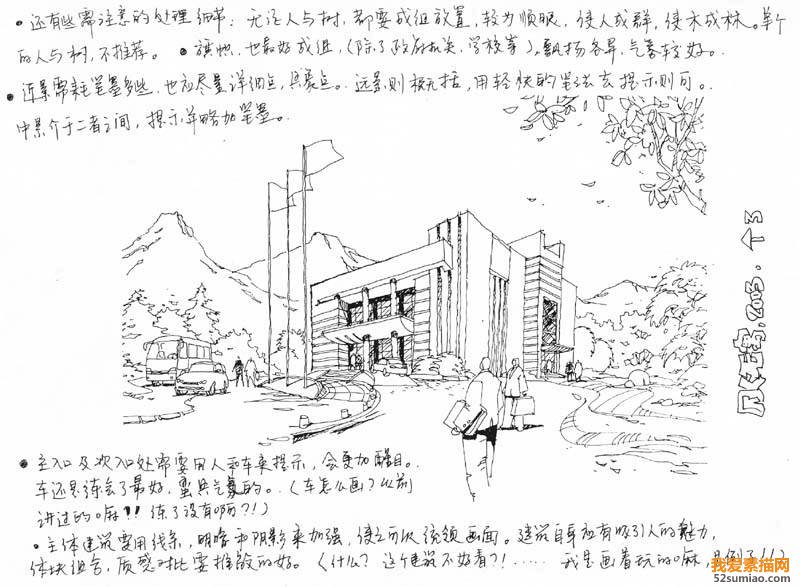 ·还有些需注意的处理细节：无论人与树，都要成组放置，较为顺眼，使人成群，使木成林。单个
的人与树，不推荐。 ·旗帜，也最好成组，（除了政府机关、学校等），飘扬各异，气氛较好。
·近景需耗笔墨多些，也应尽量详细点，具象点。远景则概括，用轻快的笔法去提示则可。
中景介于二者之间，提示并略加笔墨。
2003.
·主入口及次入口处需要用人和车来提示，会更加醒目。
车还是练会了最好，蛮具气氛的。（车怎么画？以前
讲过的嘛！！练了没有啊？！）
·主体建筑要用线条，明暗和阴影来加强，使之可以统领画面。建筑自身应有吸引人的魅力，
体块组合，质感对比要推敲的好。（什么？这个建筑不好看？！……我是画着玩的嘛，
我爱素描网
52sumiao.com